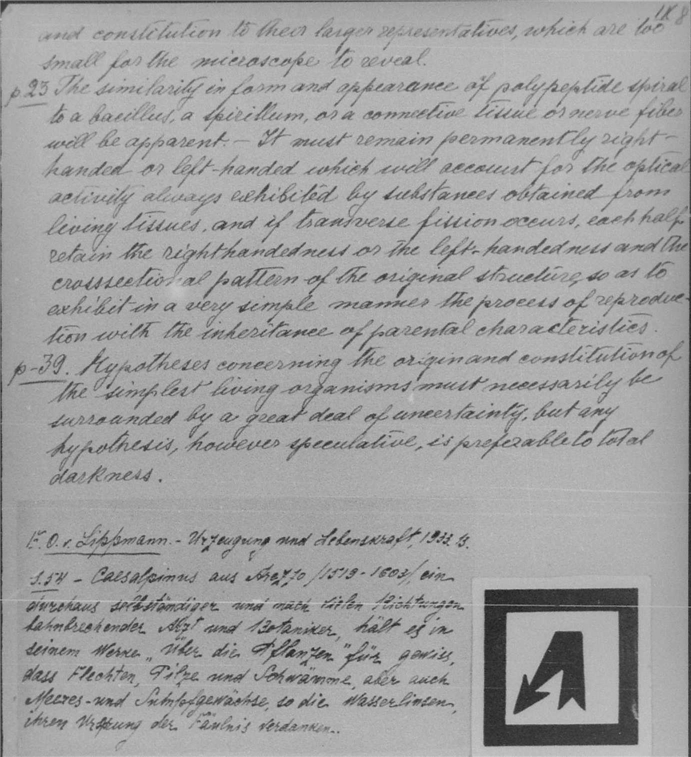 IX 8
and constitution to their larger representatives, which are too
small for the microscope to reveal.
p 23 The similarity in form and appearance of polypeptide spiral
to a bacillus, a spirillum, or a connective tissue or nerve fiber
will be apparent. — It must remain permanently right-
handed or left-handed which will account for the optical
activity always exhibited by substances obtained from
living tissues, and if transverse fission occurs, each half
retain the righthandedness or the left-handedness and the
crosssectional pattern of the original structure, so as to
exhibit in a very simple manner the process of reproduc-
tion with the inheritance of parental characteristics.
p-39. Hypotheses concerning the origin and constitution of
the simplest living organisms must necessarily be
surrounded by a great deal of uncertainty, but any
hypothesis, however speculative, is preferable to total
darkness.
E. O. v. Lippmann. - Urzeugung und Lebenskraft, 1933.
S.54 - Caesalpinus aus Arezzo /1519-1603/ ein
durchaus selbständiger und nach vielen Richtungen
bahnbrechender Arzt und Botaniker, hält es in
seinem Werke „Über die Pflanzen" für gewiss,
dass Flechten, Pilze und Schwämme, aber auch
Meeres- und Sumpfgewächse, so die Wasserlinsen,
ihren Ursprung der Fäulnis verdanken..